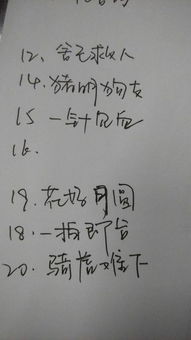 12、舍己救人
14.猪朋狗友
15 一针见血
16.
19.花好月圆
18.一拍即合
20.骑虎难下